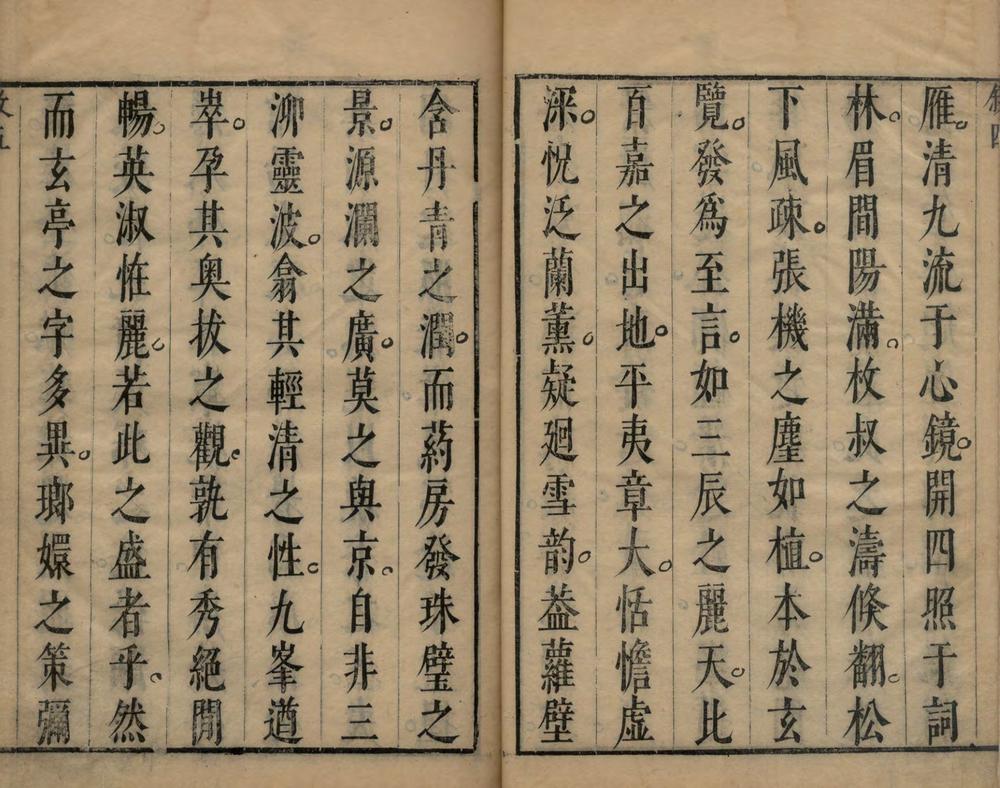 敘四
雁。清九流于心鏡。開四照于詞
林。眉間陽滿。枚叔之濤倏翻。松
下風疎。張機之塵如植。本於玄
覽。發為至言。如三辰之麗天。比
百嘉之出地。平夷章大。恬憺虛
深。怳泛蘭薰。疑廻雪韵。葢蘿壁
含丹青之潤。而葯房發珠璧之
景。源瀾之廣。莫之與京。自非三
泖靈波。翕其輕清之性。九峯遒
崒。孕其奥拔之觀。孰有秀絕閒
暢。英淑惟麗。若此之盛者乎。然
而玄亭之字多異。瑯嬛之策彌
敘五